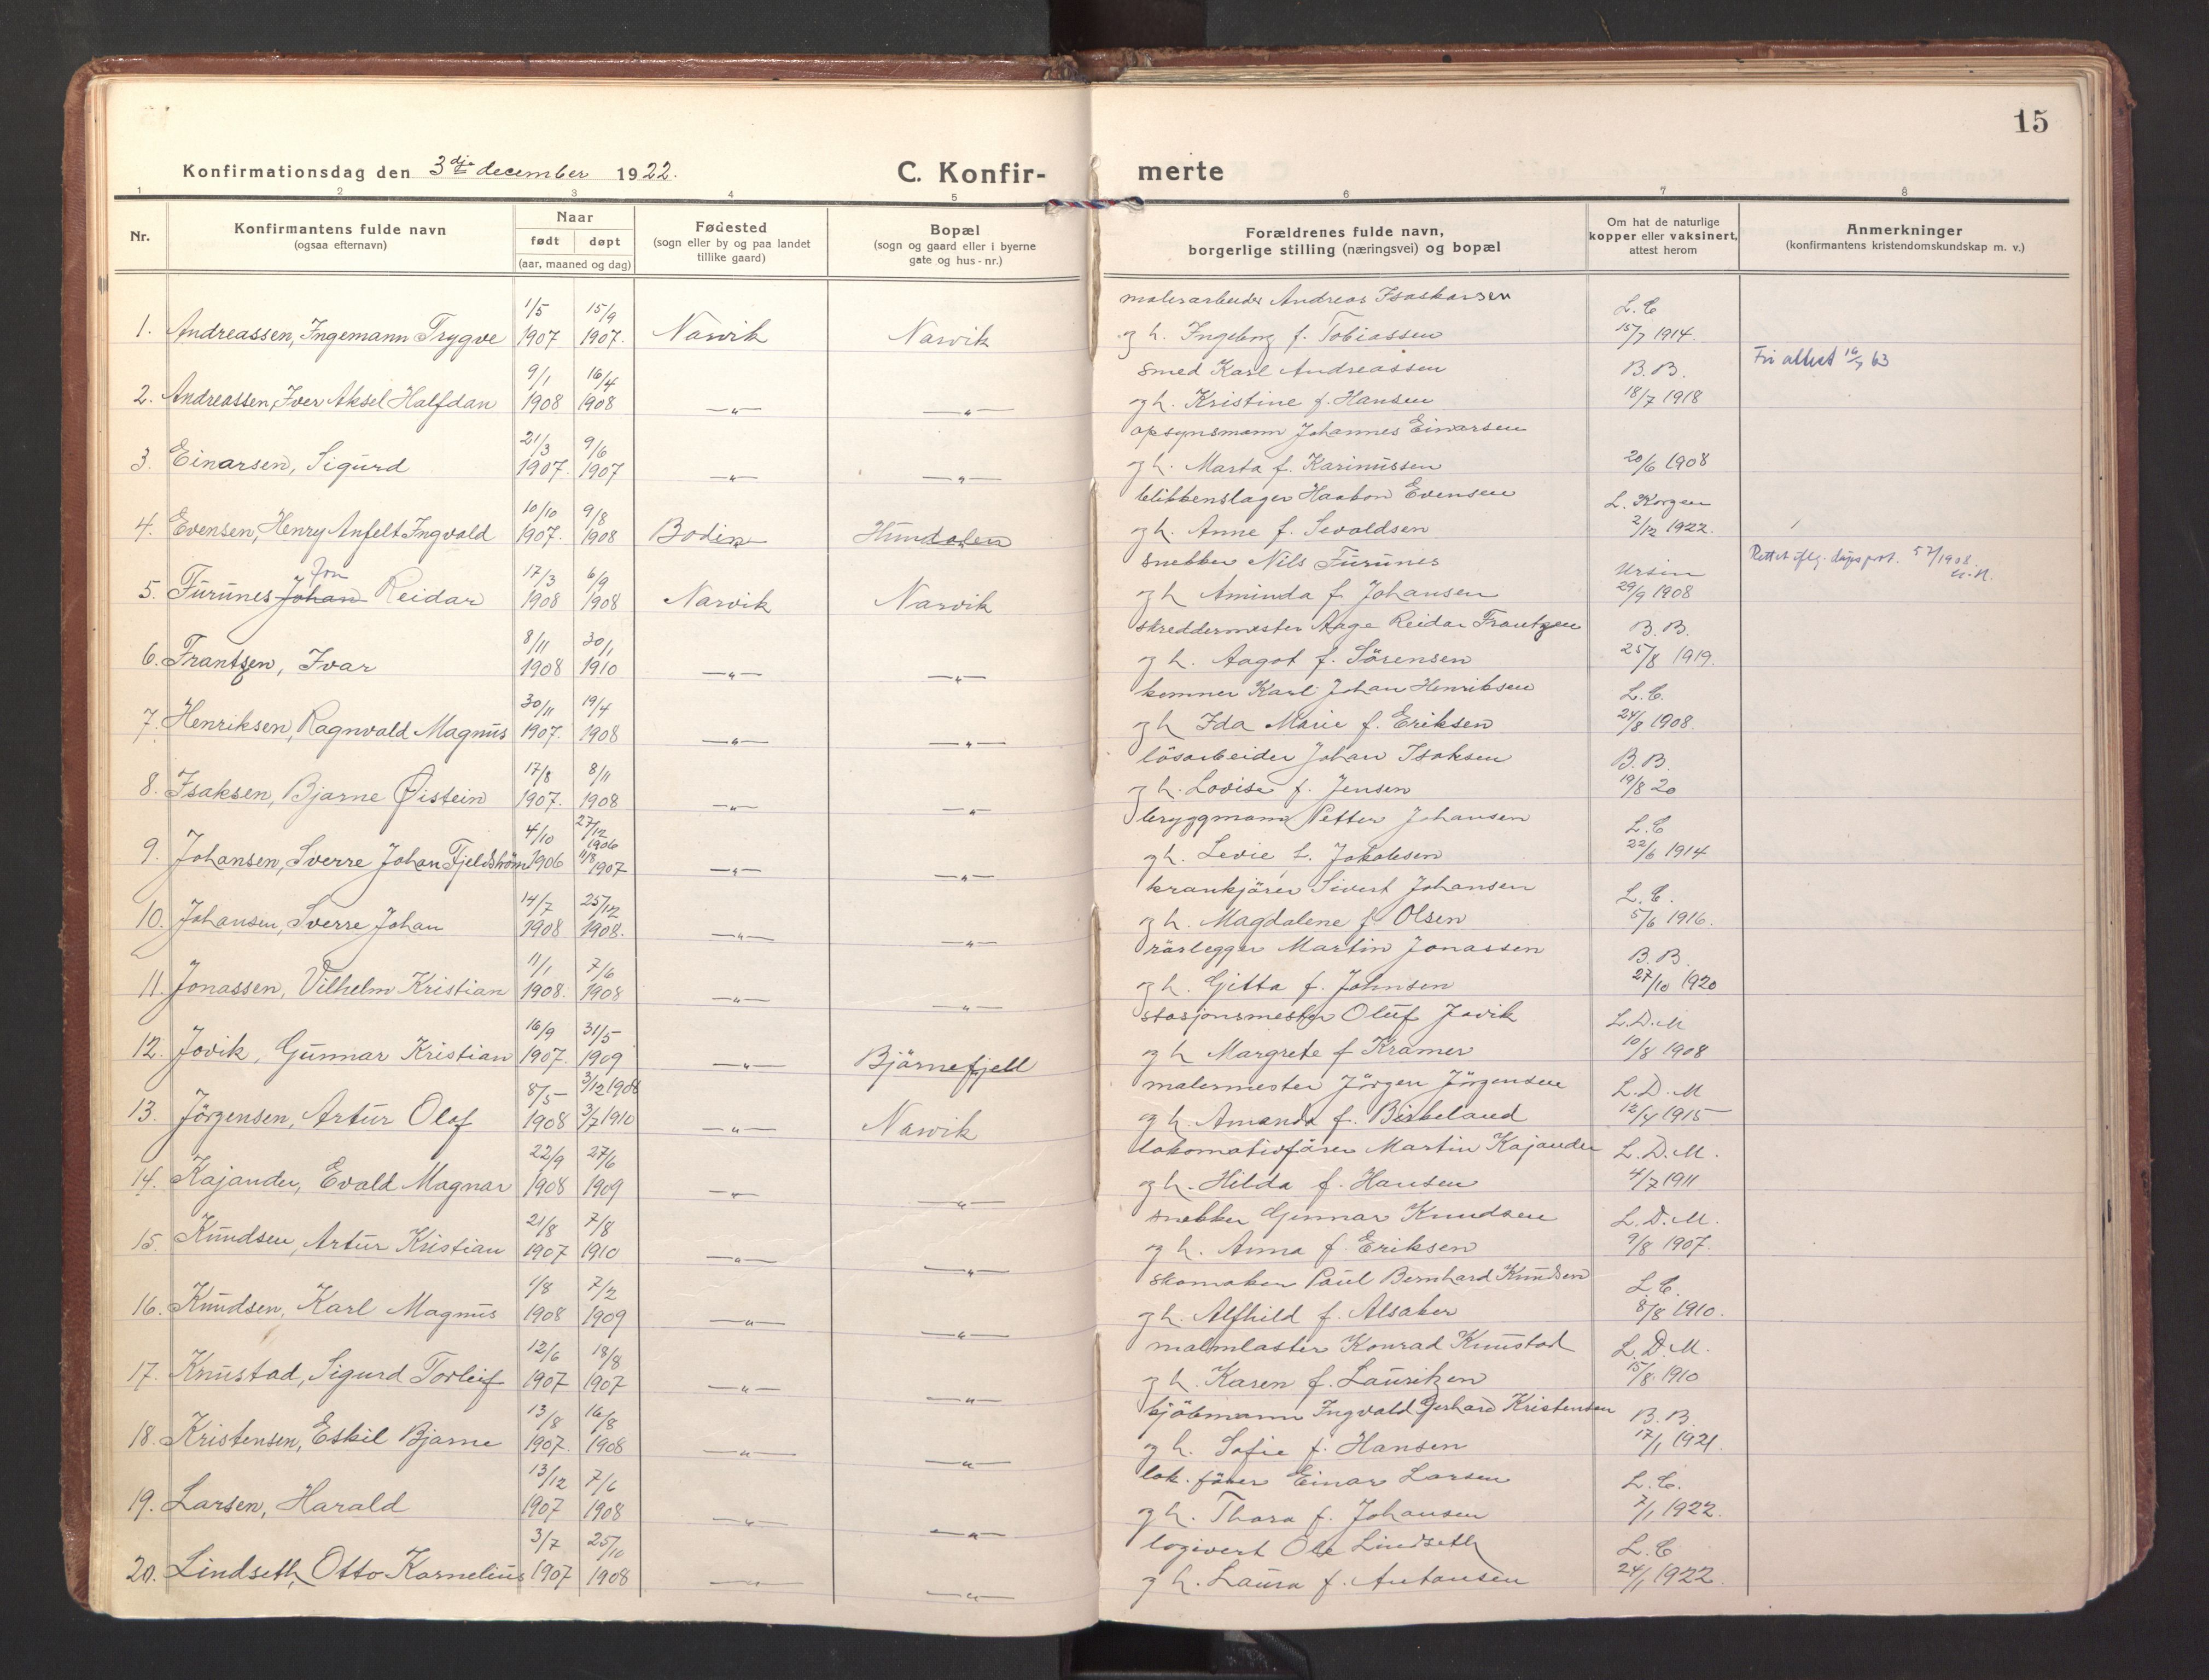 15
Konfirmationsdag den 3dje december 1922.
C. Konfirmerte
1 2 3 4 5 6 7 8
Nr.
Konfirmantens fulde navn
(ogsaa efternavn)
Naar
født
døpt
(aar, maaned og dag)
Fødested
(sogn eller by og paa landet
tillike gaard)
Bopæl
(sogn og gaard eller i byerne
gate og hus-nr.)
Forældrenes fulde navn,
borgerlige stilling (næringsvei) og bopæl
Om hat de naturlige
kopper eller vaksinert,
attest herom
Anmerkninger
(konfirmantens kristendomskundskap m. v.)
1/5 15/9 malerarbeider Andreas Isaksen L.C
1. Andreassen, Ingemann Trygve 1907 1907. Narvik Narvik og h. Ingeborg f. Tobiassen 15/7 1914.
9/1 16/4 smed Karl Andreassen B.B. Fri attest 63
2. Andreassen, Iver Aksel Halfdan 1908 1908 —"— —"— og h. Kristine f. Hansen 18/7 1918
21/3 9/6 opsynsmann Johannes Einarsen
3. Einarsen, Sigurd 1907. 1907 —"— —"— og h. Marta f. Karinussen 20/6 1908
10/10 9/8 blikkenslager Haakon Evensen L. Korgen
4. Evensen, Henry Anfelt Ingvald 1907. 1908 Bodin Hundalen og h. Anne f. Sevaldsen 2/12 1922.
Jon 17/3 6/9 snekker Nils Furunes Ursin Rettet iflg. dåpsprot. 57/1908.
5. Furunes Johan Reidar 1908 1908 Narvik Narvik og h Aminda f. Johansen 29/9 1908
8/11 30/1 skreddermester Aage Reidar Frantzen B.B.
6. Frantzen, Ivar 1908 1910 —"— —"— og h. Aagot f. Sörensen 25/8 1919.
30/11 19/4 kemner Karl Johan Henriksen L.C.
7. Henriksen, Ragnvald Magnus 1907. 1908 —"— —"— og h Ida Marie f. Eriksen 24/8 1908.
17/8 8/11 lösarbeider Johan Isaksen B.B.
8. Isaksen, Bjarne Øistein 1907. 1908 —"— —"— og h. Lovise f. Jensen 19/8 20
4/10 27/12 1906 bryggmann Petter Johansen L.C
9. Johansen, Sverre Johan Fjeldström 1906 11/8 1907 —"— —"— og h. Levie f. Jakobsen 22/6 1914
14/7 25/12 krankjörer Sivert Johansen L.C.
10. Johansen, Sverre Johan 1908 1908. —"— —"— og h. Magdalene f. Olsen 5/6 1916.
11/1 7/6 rörlegger Martin Jonassen B.B.
11. Jonassen, Vilhelm Kristian 1908. 1908 —"— —"— og h. Gitta f. Johnsen 27/10 1920
16/9 31/5 stasjonsmester Oluf Jovik L.D.M
12. Jovik, Gunnar Kristian 1907. 1909 —"— Björnefjell og h Margrete f Kramer 10/8 1908
8/5 3/12 1908 malermester Jörgen Jörgensen L.D.M
13. Jörgensen, Artur Olof 1908 3/7 1910 —"— Narvik og h. Amanda f. Birkeland 12/4 1915
22/9 27/6 lokomotivförer Martin Kajander L.D.M.
14. Kajander, Evald Magnar 1908 1909 —"— —"— og h. Hilda f. Hansen 4/7 1911
21/8 7/8 snekker Gunnar Knudsen L.D.M.
15. Knudsen, Artur Kristian 1907 1910 —"— —"— og h. Anna f. Eriksen 9/8 1907.
1/8 7/2 skomaker Paul Bernhard Knudsen L.C.
16. Knudsen, Karl Magnus 1908 1909 —"— —"— og h. Alfhild f. Alsaker 8/8 1910.
12/6 18/8 malmlaster Konrad Knustad L.D.M.
17. Knustad, Sigurd Torleif 1907 1907 —"— —"— og h. Karen f. Lauritzen 15/8 1910
13/8 16/8 kjöbmann Ingvald Gerhard Kristensen B.B.
18. Kristensen, Eskil Bjarne 1907. 1908 —"— —"— og h. Sofie f. Hansen 17/1 1921.
13/12 7/6 lok. förer Einar Larsen L.C.
19. Larsen, Harald 1907 1908 —"— —"— og h. Thora f. Johansen 7/1 1922.
3/7 25/10 logivert Ole Lindseth L.C
20. Lindseth, Otto Kornelius 1907 1908 —"— —"— og h. Laura f. Antonsen 24/1 1922.